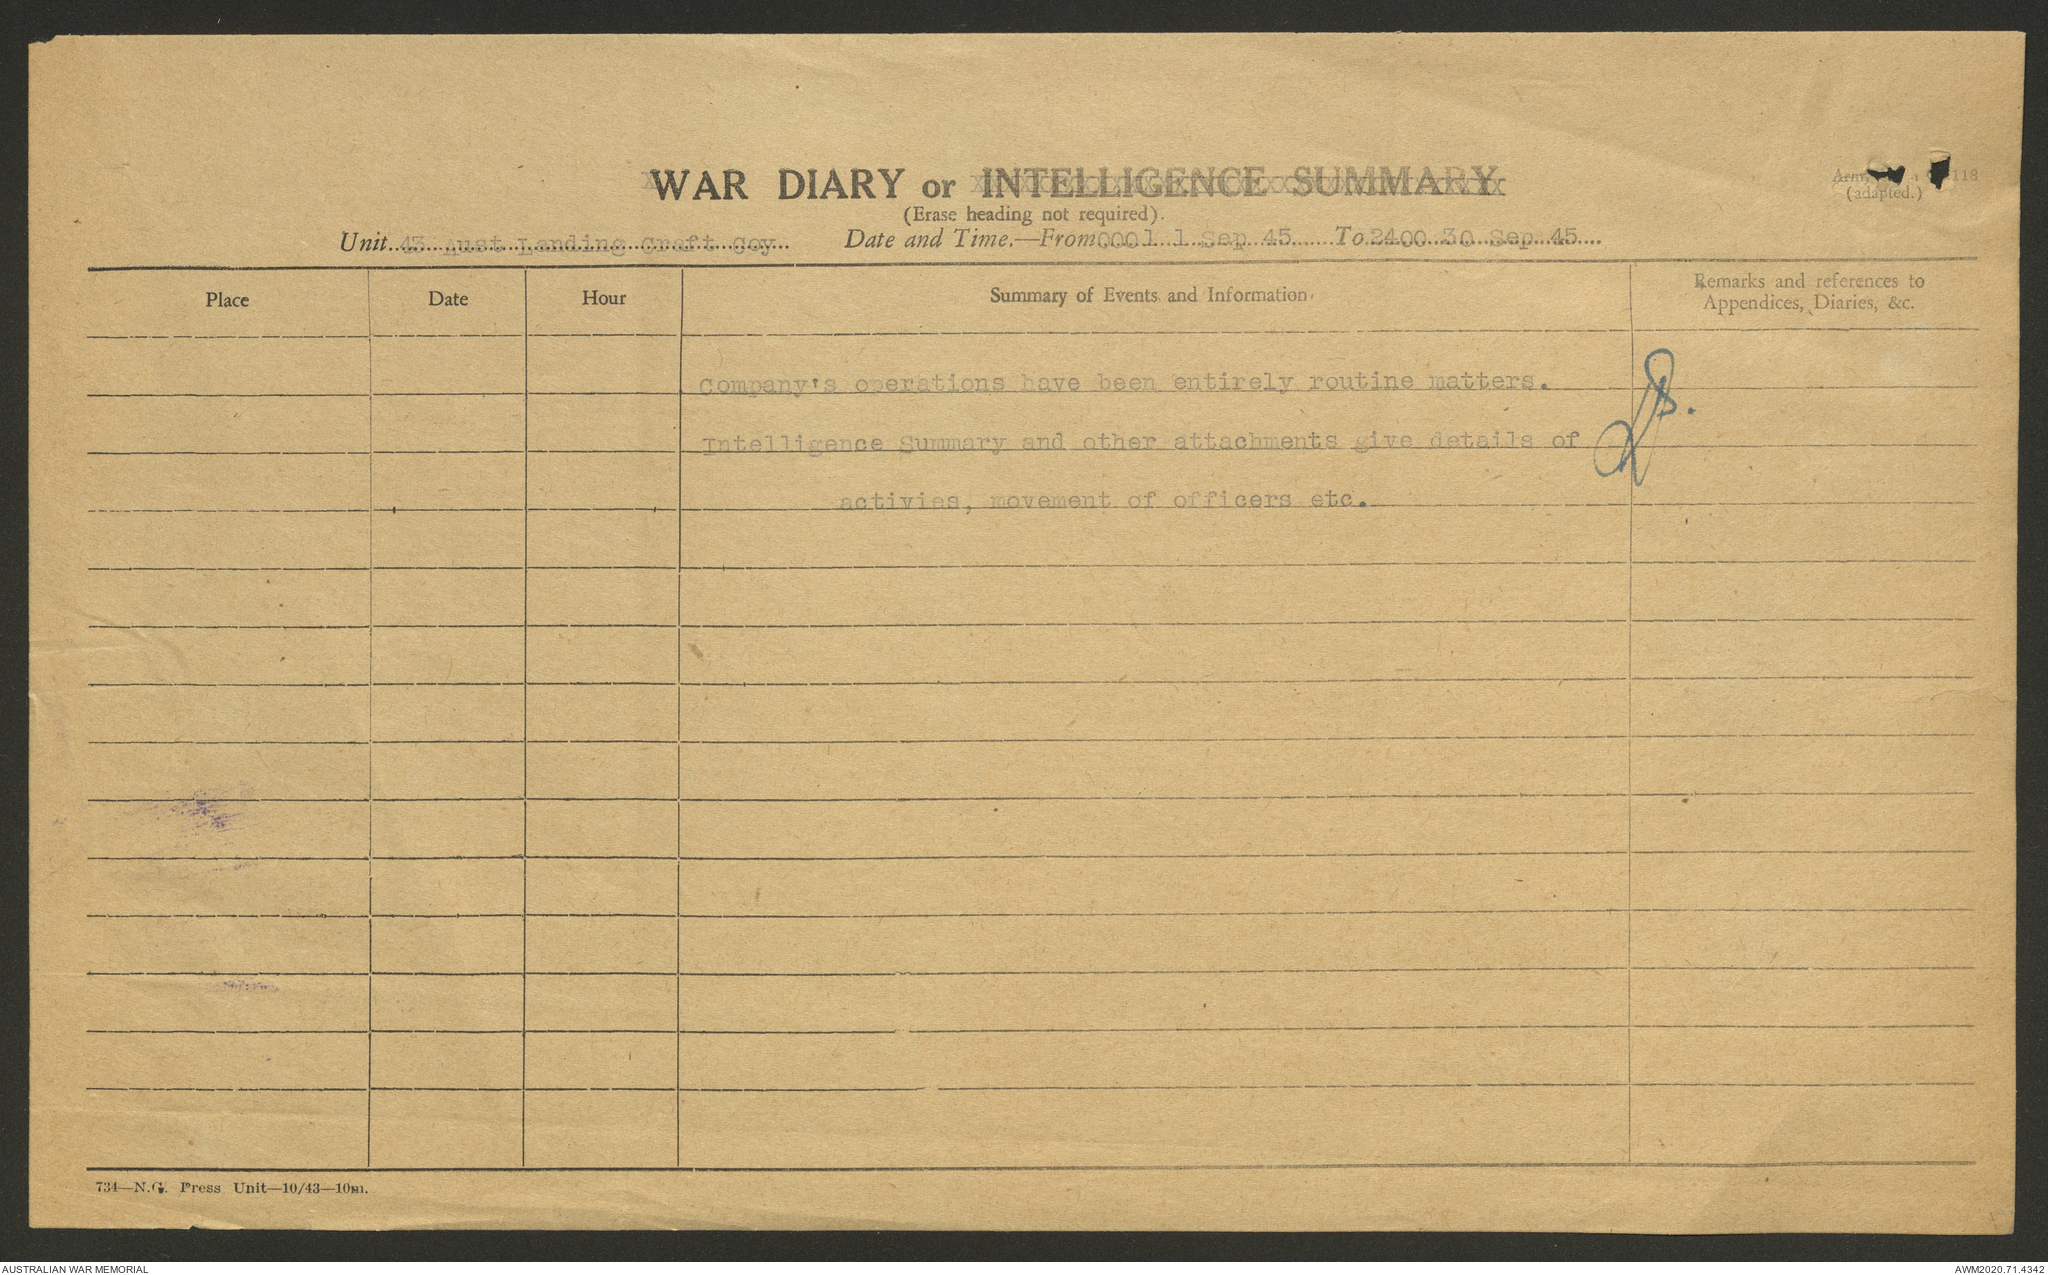 WAR DIARY or INTELLIGENCE SUMMARY
(Erase heading not required).
118
(adapted.)
Unit 43 Aust Landing Craft Coy Date and Time.—From 0001 1 Sep 45 To 2400 30 Sep 45
Place Date Hour Summary of Events and Information. Remarks and references to
Appendices, Diaries, &c.
Company's operations have been entirely routine matters.
Intelligence Summary and other attachments give details of
activies, movement of officers etc.
734—N.G. Press Unit—10/43—10m.
AUSTRALIAN WAR MEMORIAL
AWM2020.71.4342